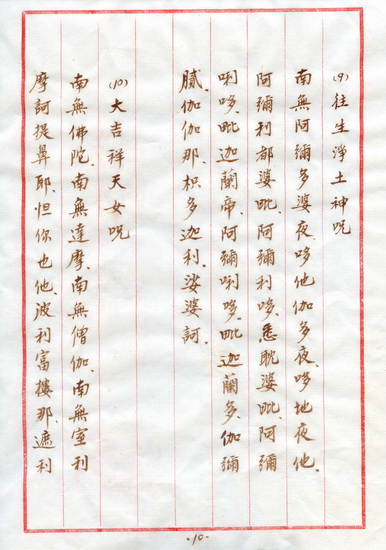 (9)往生淨土神咒
南無阿彌多婆夜、哆他伽多夜、哆地夜他、
阿彌利都婆毗、阿彌利哆、悉耽婆毗、阿彌
唎哆、毗迦蘭帝、阿彌唎哆、毗迦蘭多、伽彌
膩、伽伽那、枳多迦利、娑婆訶。
(10)大吉祥天女咒
南無佛陀、南無達摩、南無僧伽、南無室利
摩訶提鼻耶、怛你也他、波利富樓那、遮利
-10-